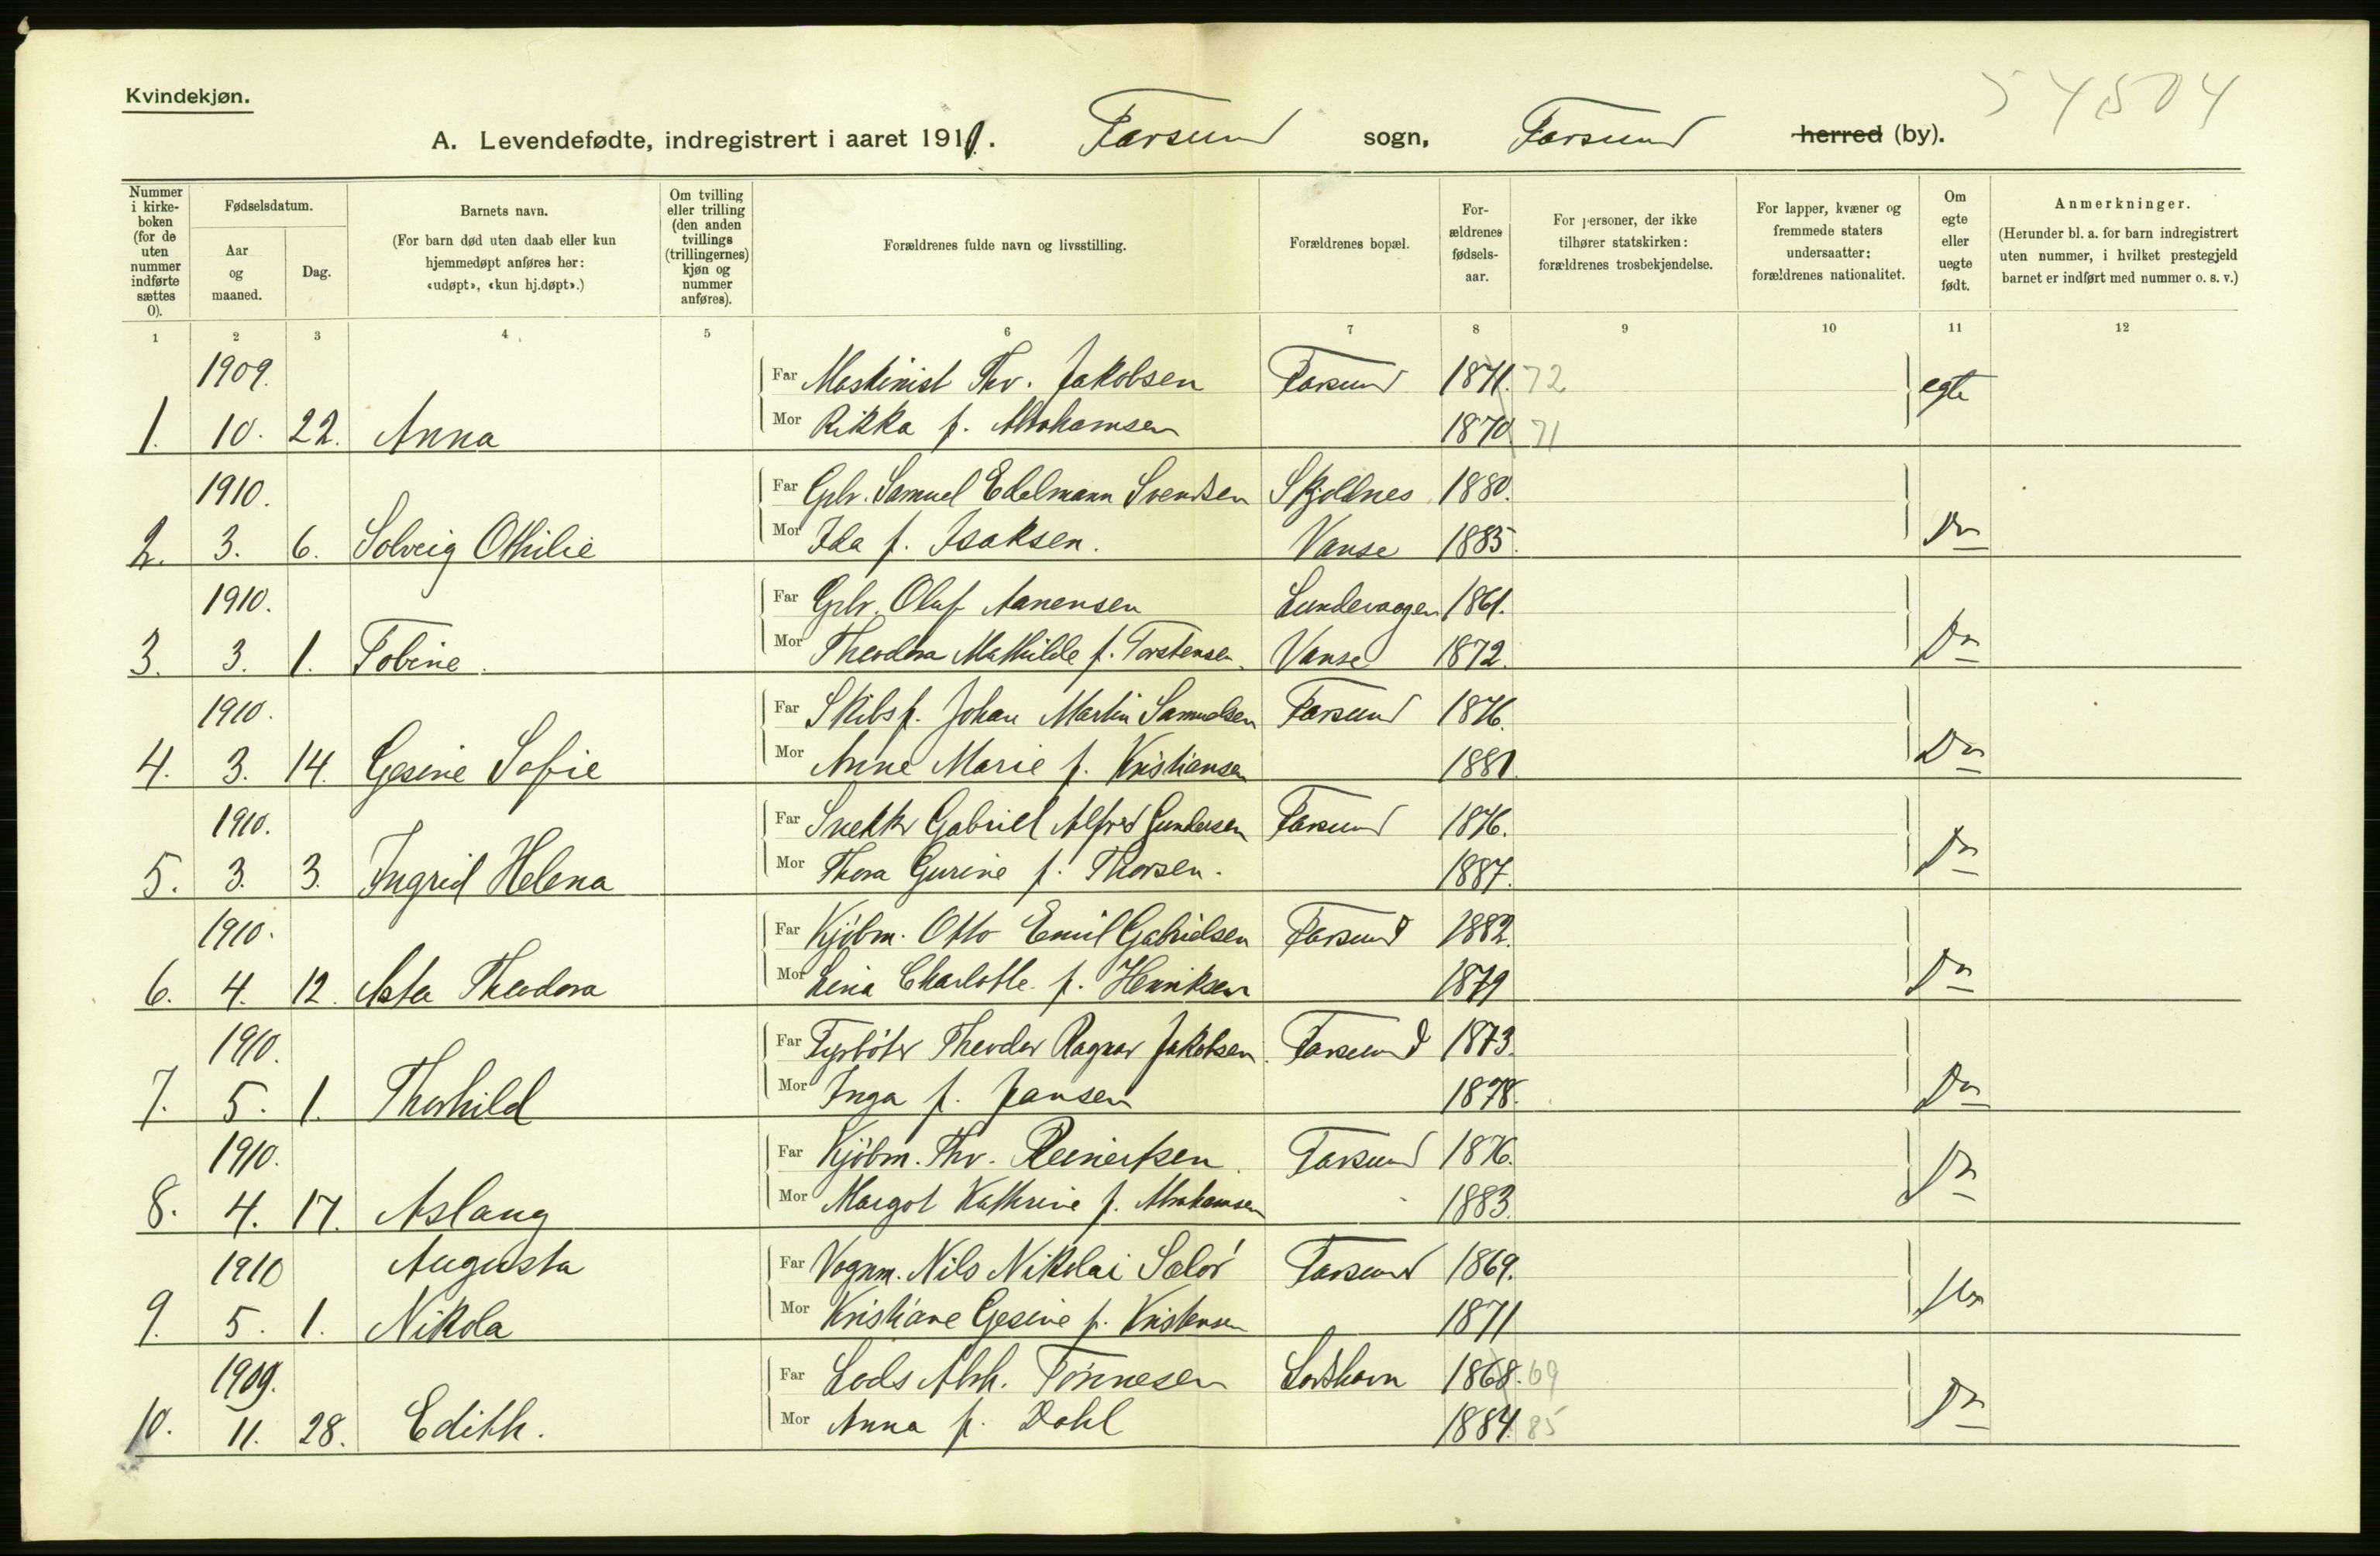 Kvindekjøn.
54504
A. Levendefødte, indregistrert i aaret 1910. Farsund sogn, Farsund herred (by).
Nummer i kirkeboken (for de uten nummer indførte sættes 0).
Fødselsdatum.
Aar og maaned.
Dag.
Barnets navn.
(For barn død uten daab eller kun hjemmedøpt anføres her: «udøpt», «kun hj.døpt».)
Om tvilling eller trilling (den anden tvillings (trillingernes) kjøn og nummer anføres).
Forældrenes fulde navn og livsstilling.
Forældrenes bopæl.
Forældrenes fødselsaar.
For personer, der ikke tilhører statskirken: forældrenes trosbekjendelse.
For lapper, kvæner og fremmede staters undersaatter: forældrenes nationalitet.
Om egte eller uegte født.
Anmerkninger.
(Herunder bl. a. for barn indregistrert uten nummer, i hvilket prestegjeld barnet er indført med nummer o. s. v.)
1 2 3 4 5 6 7 8 9 10 11 12
1909. Far Maskinist Thv. Jakobsen Farsund 1871. 72 egte
1. 10. 22. Anna Mor Rikka f. Abrahamsen 1870 71
1910. Far Grbr. Samuel Edelmann Svendsen Skjoldnes 1880.
2. 3. 6. Solveig Othilie Mor Ida f. Isaksen. Vanse 1885. Do
1910. Far Grbr. Oluf Aanensen Lundevaagen 1861.
3. 3. 1. Tobine. Mor Theodora Mathilde f. Torstensen. Vanse 1872. Do
1910. Far Skibsf. Johan Martin Samuelsen Farsund 1876.
4. 3. 14. Gesine Sofie Mor Anne Marie f. Kristiansen 1881. Do
1910. Far Snekker Gabriel Alfred Gundersen Farsund 1876.
5. 3. 3. Ingrid Helena Mor Thora Gurine f. Thorsen. 1887. Do
1910. Far Kjöbm. Otto Emil Gabrielsen Farsund 1882.
6. 4. 12. Asta Theodora Mor Lina Charlotte f. Henriksen 1879 Do
1910. Far Fyrböter Theodor Ragnar Jakobsen. Farsund 1873.
7. 5. 1. Thorhild Mor Inga f. Jansen 1878. Do
1910. Far Kjöbm. Thv. Reinertsen. Farsund 1876.
8. 4. 17. Aslaug Mor Margot Kathrine f. Abrahamsen 1883. Do
1910 Augusta Far Vognm. Nils Nikolai Salör Farsund 1869.
9. 5. 1. Nikola Mor Kristiane Gesine f. Kristensen 1871 Do
1909. Far Lods Abrh. Tönnesen Loshavn 1868. 69
10. 11. 28. Edith. Mor Anna f. Dahl 1884. 85 Do